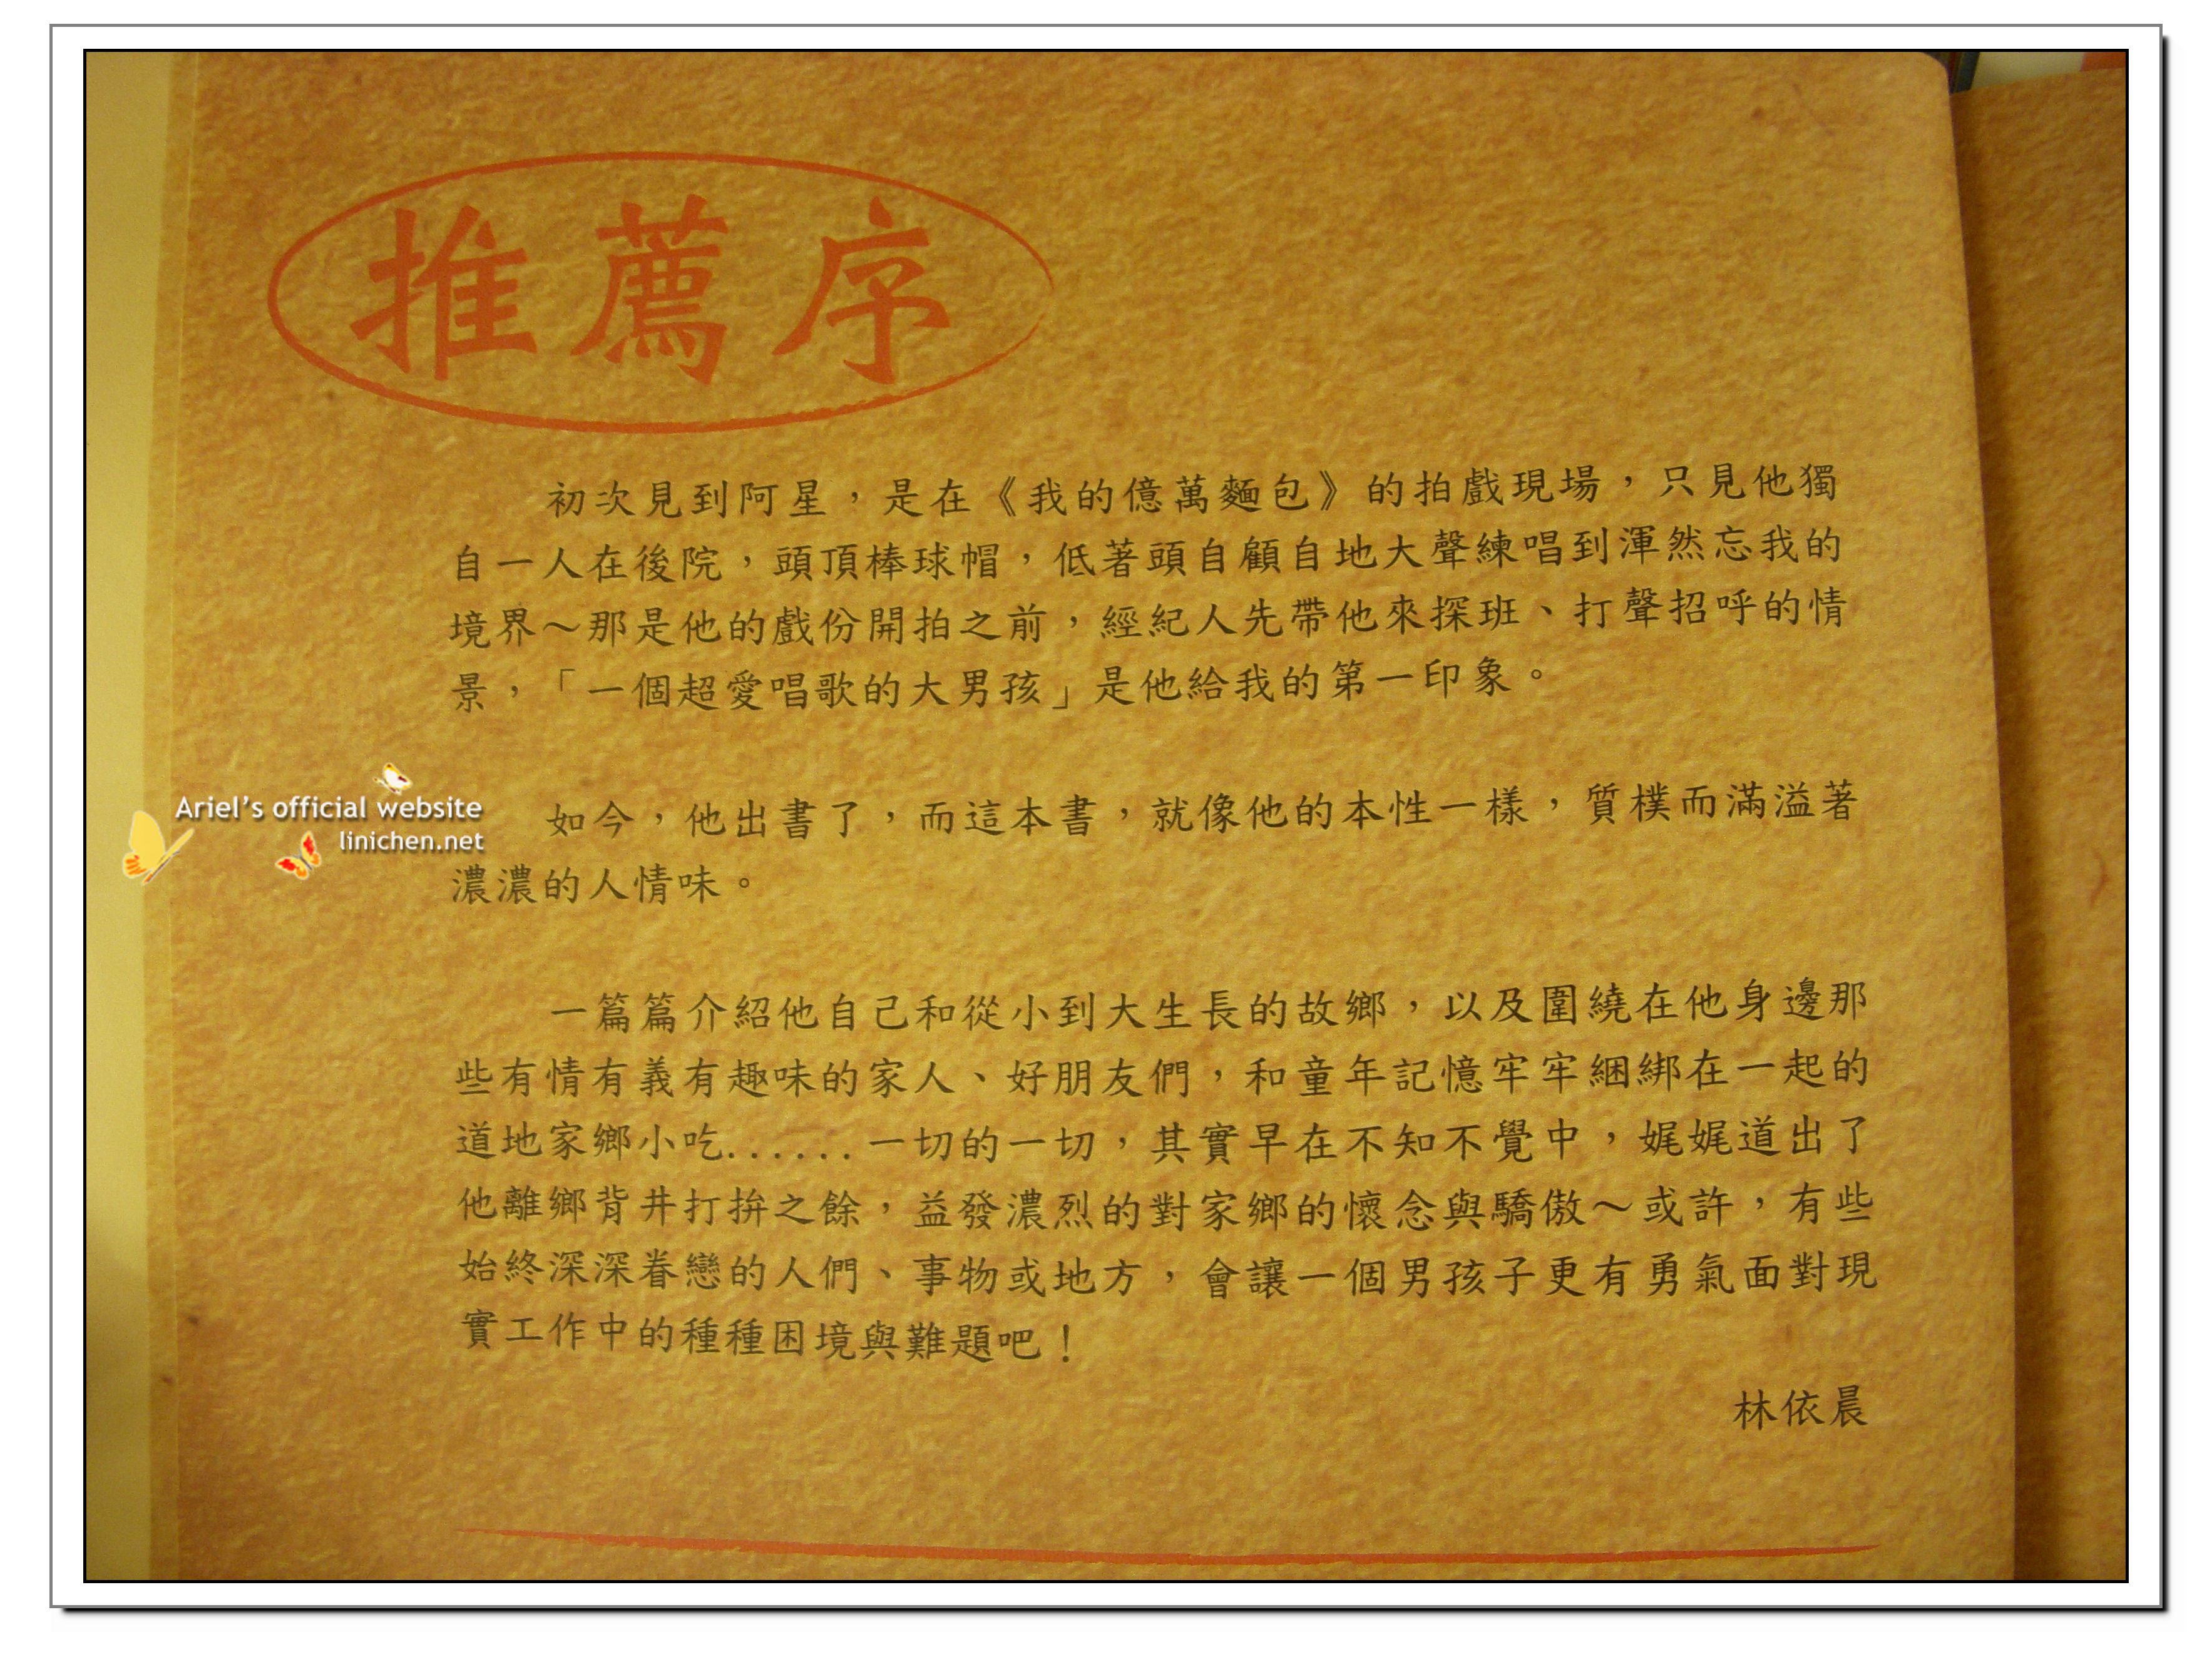 推薦序
初次見到阿星，是在《我的億萬麵包》的拍戲現場，只見他獨
自一人在後院，頭頂棒球帽，低著頭自顧自地大聲練唱到渾然忘我的
境界～那是他的戲份開拍之前，經紀人先帶他來探班、打聲招呼的情
景，「一個超愛唱歌的大男孩」是他給我的第一印象。
Ariel's official website
linichen.net
如今，他出書了，而這本書，就像他的本性一樣，質樸而滿溢著
濃濃的人情味。
一篇篇介紹他自己和從小到大生長的故鄉，以及圍繞在他身邊那
些有情有義有趣味的家人、好朋友們，和童年記憶牢牢綑綁在一起的
道地家鄉小吃......一切的一切，其實早在不知不覺中，娓娓道出了
他離鄉背井打拚之餘，益發濃烈的對家鄉的懷念與驕傲～或許，有些
始終深深眷戀的人們、事物或地方，會讓一個男孩子更有勇氣面對現
實工作中的種種困境與難題吧！
林依晨